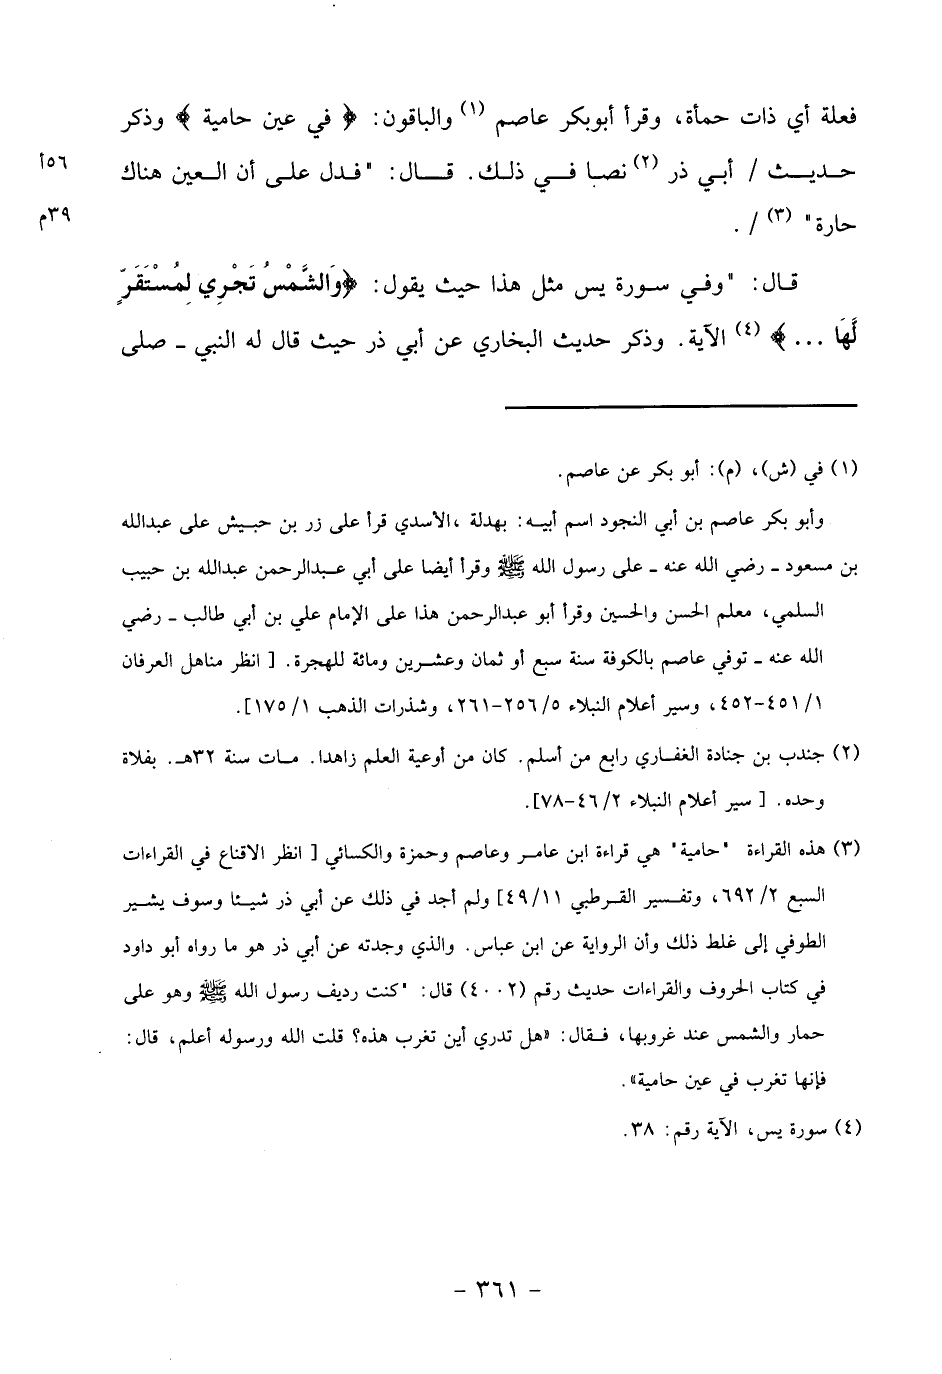 فعلة أي ذات حمأة، وقرأ أبوبكر عاصم (١) والباقون: ﴿ في عين حامية ﴾ وذكر
حديث / أبي ذر (٢) نصا في ذلك. قال: "فدل على أن العين هناك
٥٦أ
حارة" (٣) / .
٣٩م
قال: "وفي سورة يس مثل هذا حيث يقول: ﴿وَالشَّمْسُ تَجْرِي لِمُسْتَقَرٍّ
لَّهَا ... ﴾ (٤) الآية. وذكر حديث البخاري عن أبي ذر حيث قال له النبي ـ صلى
(١) في (ش)، (م): أبو بكر عن عاصم.
وأبو بكر عاصم بن أبي النجود اسم أبيه: بهدلة ،الأسدي قرأ على زر بن حبيش على عبدالله
بن مسعود ـ رضي الله عنه ـ على رسول الله ﷺ وقرأ أيضا على أبي عبدالرحمن عبدالله بن حبيب
السلمي، معلم الحسن والحسين وقرأ أبو عبدالرحمن هذا على الإمام علي بن أبي طالب ـ رضي
الله عنه ـ توفي عاصم بالكوفة سنة سبع أو ثمان وعشرين ومائة للهجرة. [ انظر مناهل العرفان
١/ ٤٥١-٤٥٢، وسير أعلام النبلاء ٥/ ٢٥٦-٢٦١، وشذرات الذهب ١/ ١٧٥].
(٢) جندب بن جنادة الغفاري رابع من أسلم. كان من أوعية العلم زاهدا. مات سنة ٣٢هـ. بفلاة
وحده. [ سير أعلام النبلاء ٢/ ٤٦-٧٨].
(٣) هذه القراءة "حامية" هي قراءة ابن عامر وعاصم وحمزة والكسائي [ انظر الاقناع في القراءات
السبع ٢/ ٦٩٢، وتفسير القرطبي ١١/ ٤٩] ولم أجد في ذلك عن أبي ذر شيئا وسوف يشير
الطوفي إلى غلط ذلك وأن الرواية عن ابن عباس. والذي وجدته عن أبي ذر هو ما رواه أبو داود
في كتاب الحروف والقراءات حديث رقم (٤٠٠٢) قال: "كنت رديف رسول الله ﷺ وهو على
حمار والشمس عند غروبها، فقال: «هل تدري أين تغرب هذه؟ قلت الله ورسوله أعلم، قال:
فإنها تغرب في عين حامية».
(٤) سورة يس، الآية رقم: ٣٨.
- ٣٦١ -